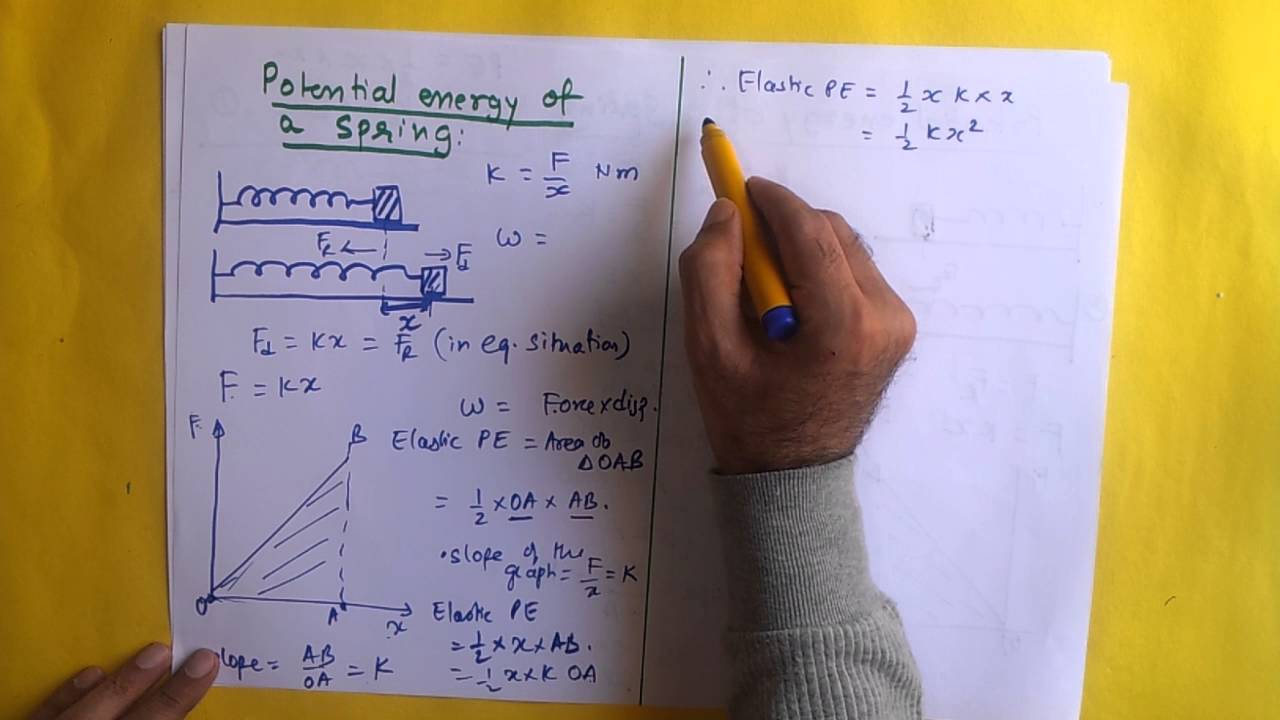 Potential energy of
a spring:
K = F/x Nm
ω =
F_R ← → F_d
x
F_d = Kx = F_R (in eq. situation)
F = Kx
ω = Force x disp.
F
B
O
A
x
Elastic PE = Area of
△OAB
= 1/2 x OA x AB.
• slope of the
graph = F/x = K
Elastic PE
= 1/2 x x x AB.
= 1/2 x x K OA
slope = AB/OA = K
∴ Elastic PE = 1/2 x K x x
= 1/2 Kx²